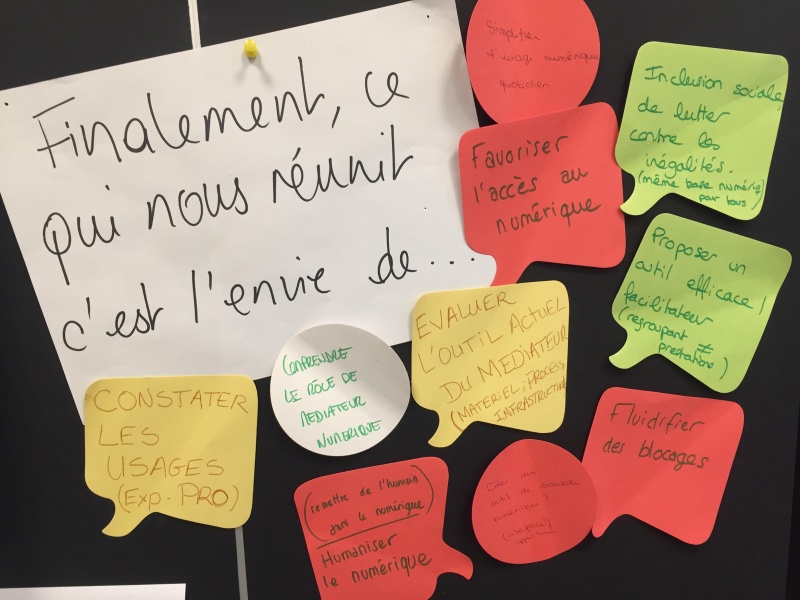 Finalement, ce
qui nous réunit
c'est l'envie de...
Simplifier
l'usage numérique
quotidien
Favoriser
l'accès au
numérique
Inclusion sociale,
de lutter
contre les
inégalités.
(même base numériq
pour tous)
Proposer un
outil efficace/
facilitateur
(regroupant ≠
prestations)
EVALUER
L'OUTIL ACTUEL
DU MEDIATEUR
(MATERIEL, PROCESS,
INFRASTRUCTURE
COMPRENDRE
LE RÔLE DE
MEDIATEUR
NUMERIQUE
CONSTATER
LES
USAGES
(Exp. PRO)
Fluidifier
des blocages
(remettre de l'humain
dans le numérique)
Humaniser
le numérique
Créer un
outil de
numérique?
(interface)